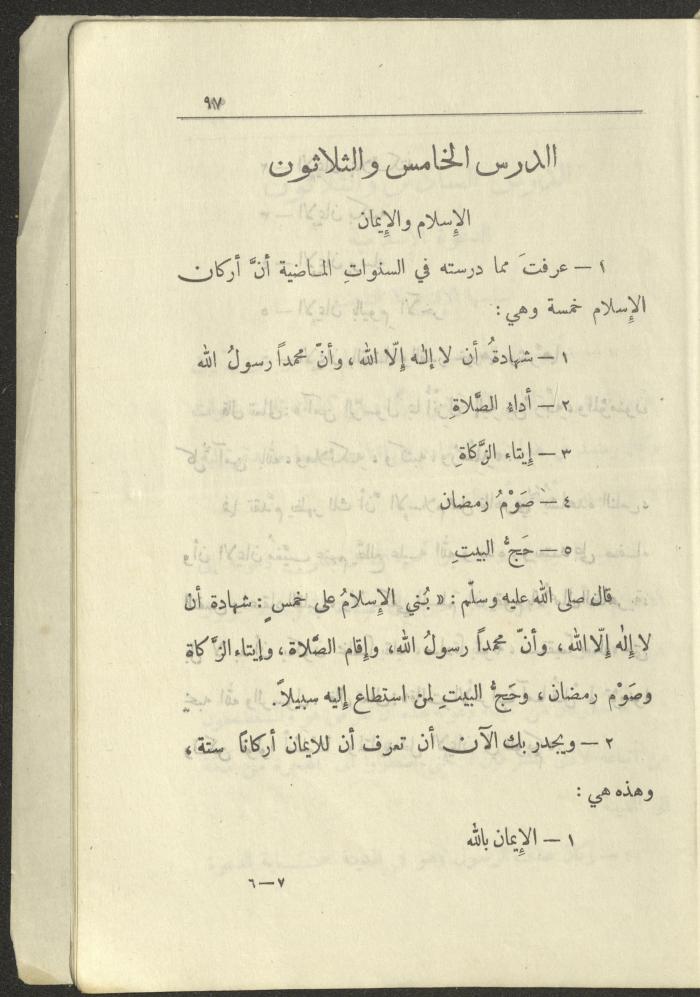 ٩٧
الدرس الخامس والثلاثون
الإسلام والإيمان
١ – عرفتَ مما درسته في السنواتِ الماضية أنَّ أركان
الإسلام خمسة وهي :
١ – شهادةُ أن لا إله إلّا الله ، وأنّ محمداً رسولُ الله
٢ – أداء الصَّلاةِ
٣ – إيتاء الزَّكاةِ
٤ – صَوْمُ رمضان
٥ – حَجُّ البيتِ
قال صلى الله عليه وسلّم : « بُني الإسلامُ على خمسٍ : شهادة أن
لا إله إلّا الله ، وأنّ محمداً رسولُ الله، وإقام الصَّلاة ، وإيتاء الزَّكاة
وصَوْم رمضان ، وحَجُّ البيتِ لمن استطاع إليه سبيلاً.
٢ – ويجدر بك الآن أن تعرف أن للايمان أركانًا ستة ،
وهذه هي :
١ – الإيمان بالله
٧–٦